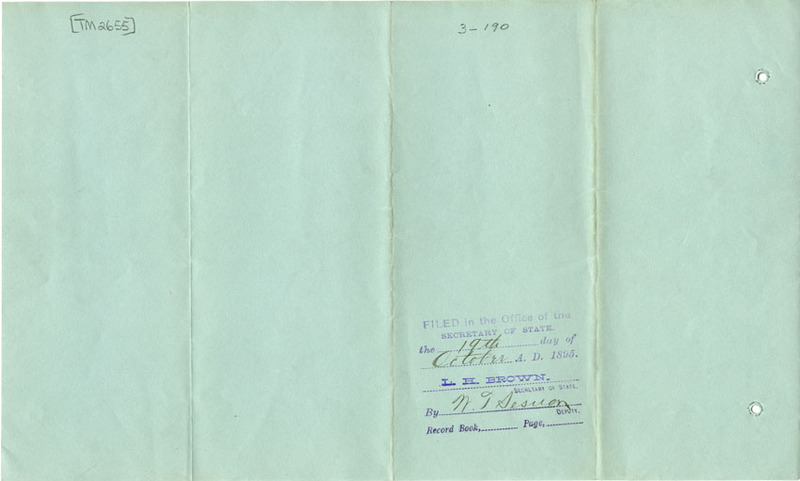 [TM2655]
3-190
FILED in the Office of the
SECRETARY OF STATE.
the 19th day of
October A. D. 1895.
L. H. BROWN.
SECRETARY OF STATE.
By W. T. Sesnon
DEPUTY.
Record Book, Page,